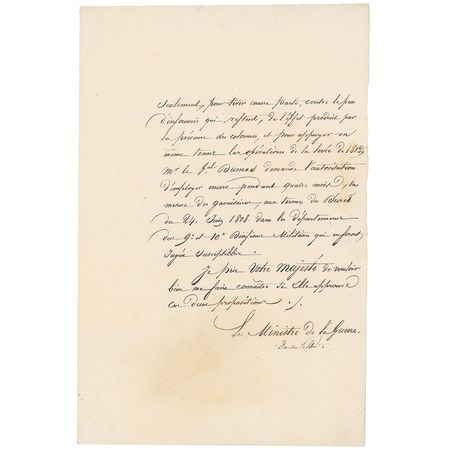 Seulement, pour tirer encore parti, contre le peu
d'insoumis qui restent, de l'effet produit par
la présence des colonnes, et pour appuyer en
même temps les opérations de la levée de 1812,
Mr. le Gal. Dumas demande l'autorisation
d'employer encore, pendant quatre mois, la
mesure des garnisaires, aux termes du Décret
du 24. Juin 1808. dans les départemens
des 9e. et 10e. Divisions Militaires qui en seront
jugés susceptibles.
Je prie Votre Majesté de vouloir
bien me faire connaître si Elle approuve
ces deux propositions ./.
Le Ministre de la Guerre.